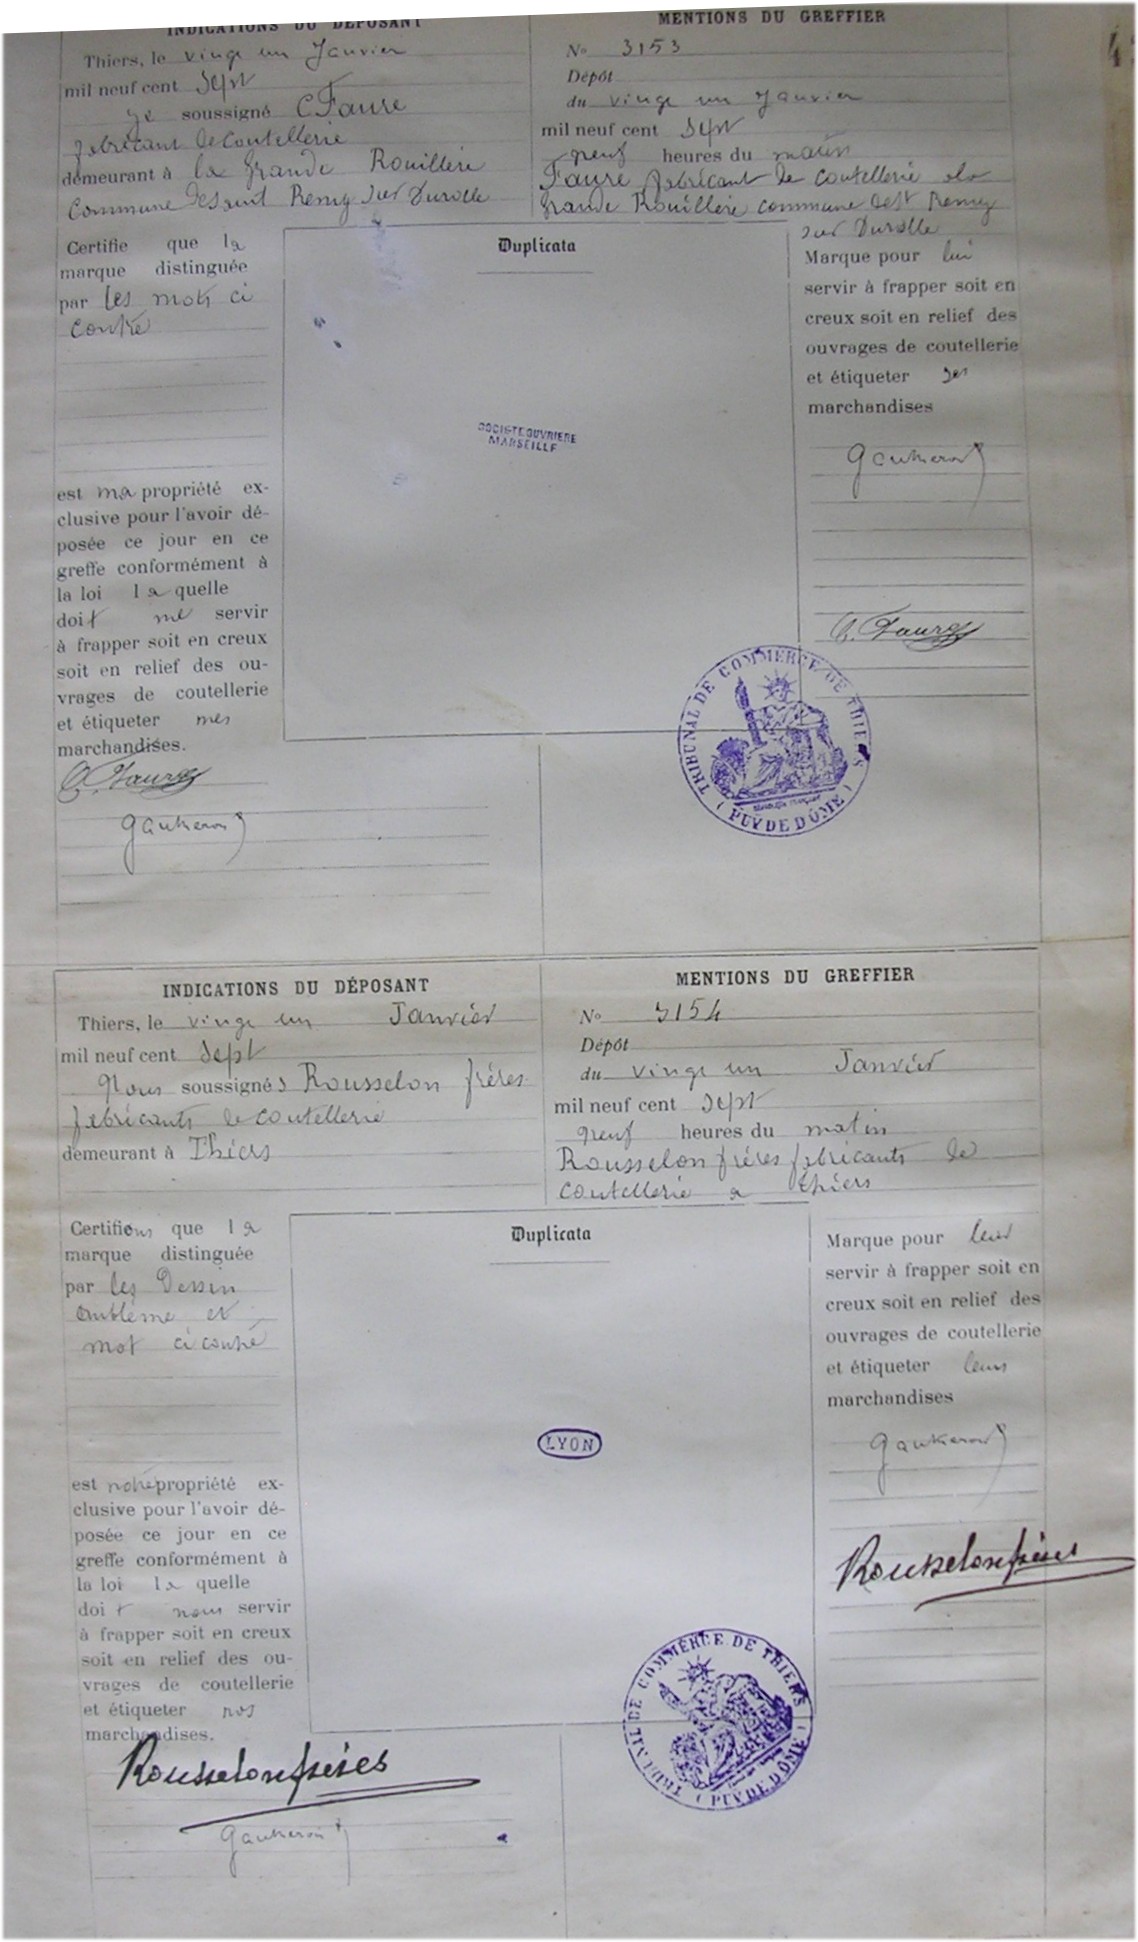 INDICATIONS DU DÉPOSANT
Thiers, le vingt un Janvier
mil neuf cent Sept
je soussigné C Faure
fabricant de coutellerie
demeurant à la grande Rouillere
Commune de Saint Remy sur Durolle
MENTIONS DU GREFFIER
No 3153
Dépôt
du vingt un Janvier
mil neuf cent Sept
neuf heures du matin
Faure fabricant de coutellerie à la
grande Rouillere commune de St Remy
sur Durolle
Certifie que la
marque distinguée
par les mots ci
contre
est ma propriété ex-
clusive pour l'avoir dé-
posée ce jour en ce
greffe conformément à
la loi la quelle
doit me servir
à frapper soit en creux
soit en relief des ou-
vrages de coutellerie
et étiqueter mes
marchandises.
C. Faure
Gautheron
Duplicata
SOCIETE OUVRIERE
MARSEILLE
Marque pour lui
servir à frapper soit en
creux soit en relief des
ouvrages de coutellerie
et étiqueter ses
marchandises
Gautheron
C. Faure
TRIBUNAL DE COMMERCE DE THIERS
(PUY DE DÔME)
INDICATIONS DU DÉPOSANT
Thiers, le vingt un Janvier
mil neuf cent Sept
Nous soussignés Rousselon frères
fabricants de coutellerie
demeurant à Thiers
MENTIONS DU GREFFIER
No 3154
Dépôt
du vingt un Janvier
mil neuf cent Sept
neuf heures du matin
Rousselon frères fabricants de
coutellerie a thiers
Certifions que la
marque distinguée
par les Dessin
emblème et
mot ci contre
est notre propriété ex-
clusive pour l'avoir dé-
posée ce jour en ce
greffe conformément à
la loi la quelle
doit nous servir
à frapper soit en creux
soit en relief des ou-
vrages de coutellerie
et étiqueter nos
marchandises.
Rousselon frères
Gautheron
Duplicata
LYON
Marque pour leur
servir à frapper soit en
creux soit en relief des
ouvrages de coutellerie
et étiqueter leurs
marchandises
Gautheron
Rousselon frères
TRIBUNAL DE COMMERCE DE THIERS
(PUY DE DÔME)